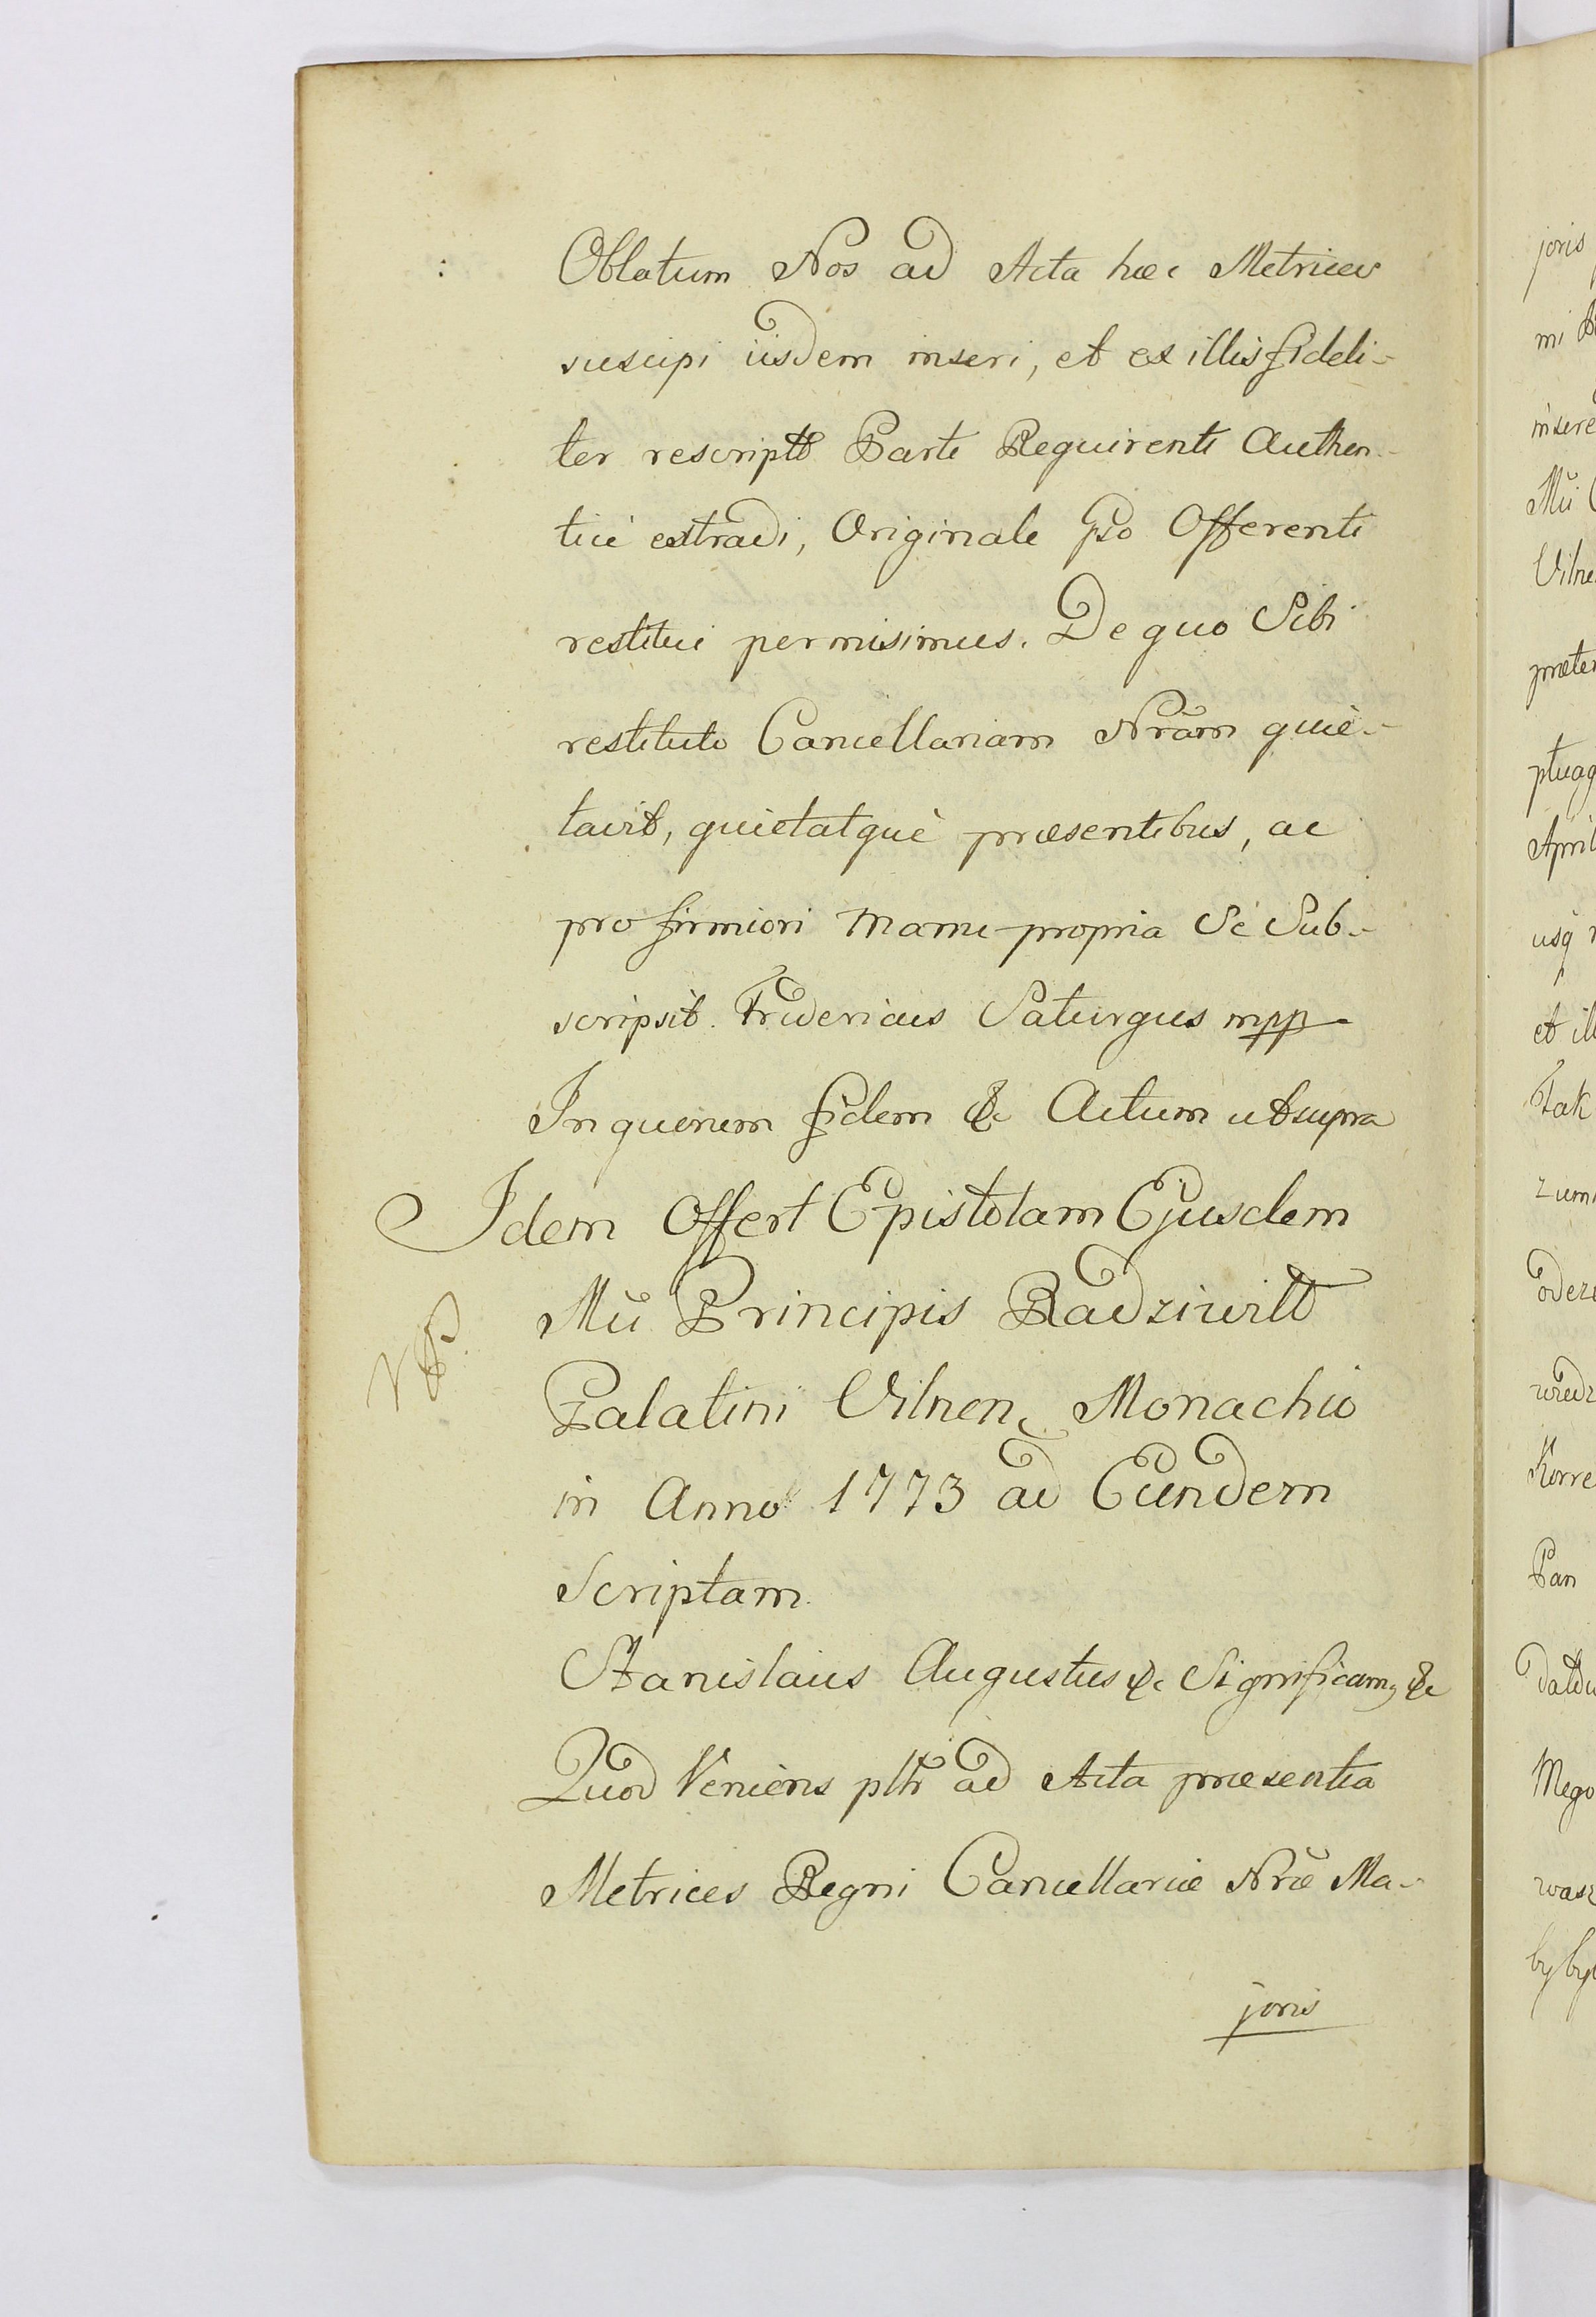 Oblatum Nos ad Acta hæc Metrices
suscipi iisdem inseri, et ex illis fideli-
ter rescriptt Parti Requirenti Authen-
ticè extradi, Originale Pso Offerenti
restitui permisimus. De quo Sibi
restituto Cancellariam Nrãm quie-
tavit, quietatquè præsentibus, ac
pro firmiori Manu propria Sè Sub-
scripsit. Fridericus Saturgus mpp
In quorum fidem &c Actum ut supra
Idem Offert Epistolam Ejusdem
Mũi Principis Radziwiłł
Palatini Vilnen, Monachio
in Anno 1773 ad Eundem
Scriptam.
Stanislaus Augustus &c Significamq &c
Quod Veniens pltr ad Acta præsentia
Metrices Regni Cancellariæ Nræ Ma-
joris
joris
mi
insere
Mũi
Vilne
præter
ptuag
April
usq
et ill
Tak
zum
odez
wiedz
Korre
Pan
dałbu
Mego
wasz
by był